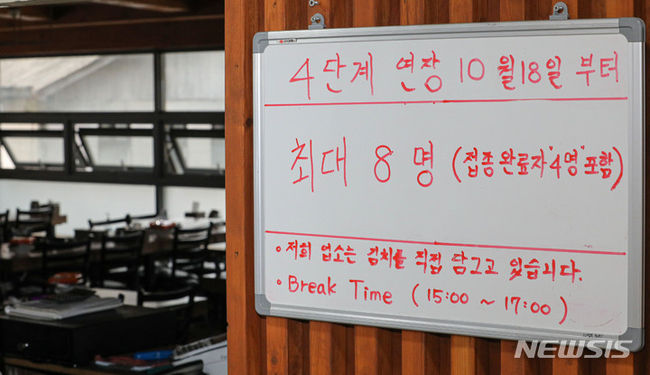 4단계 연장 10월18일 부터
최대 8명 (접종완료자 "4명" 포함)
• 저희 업소는 김치를 직접 담그고 있습니다.
• Break Time (15:00 ~ 17:00)
NEWSIS